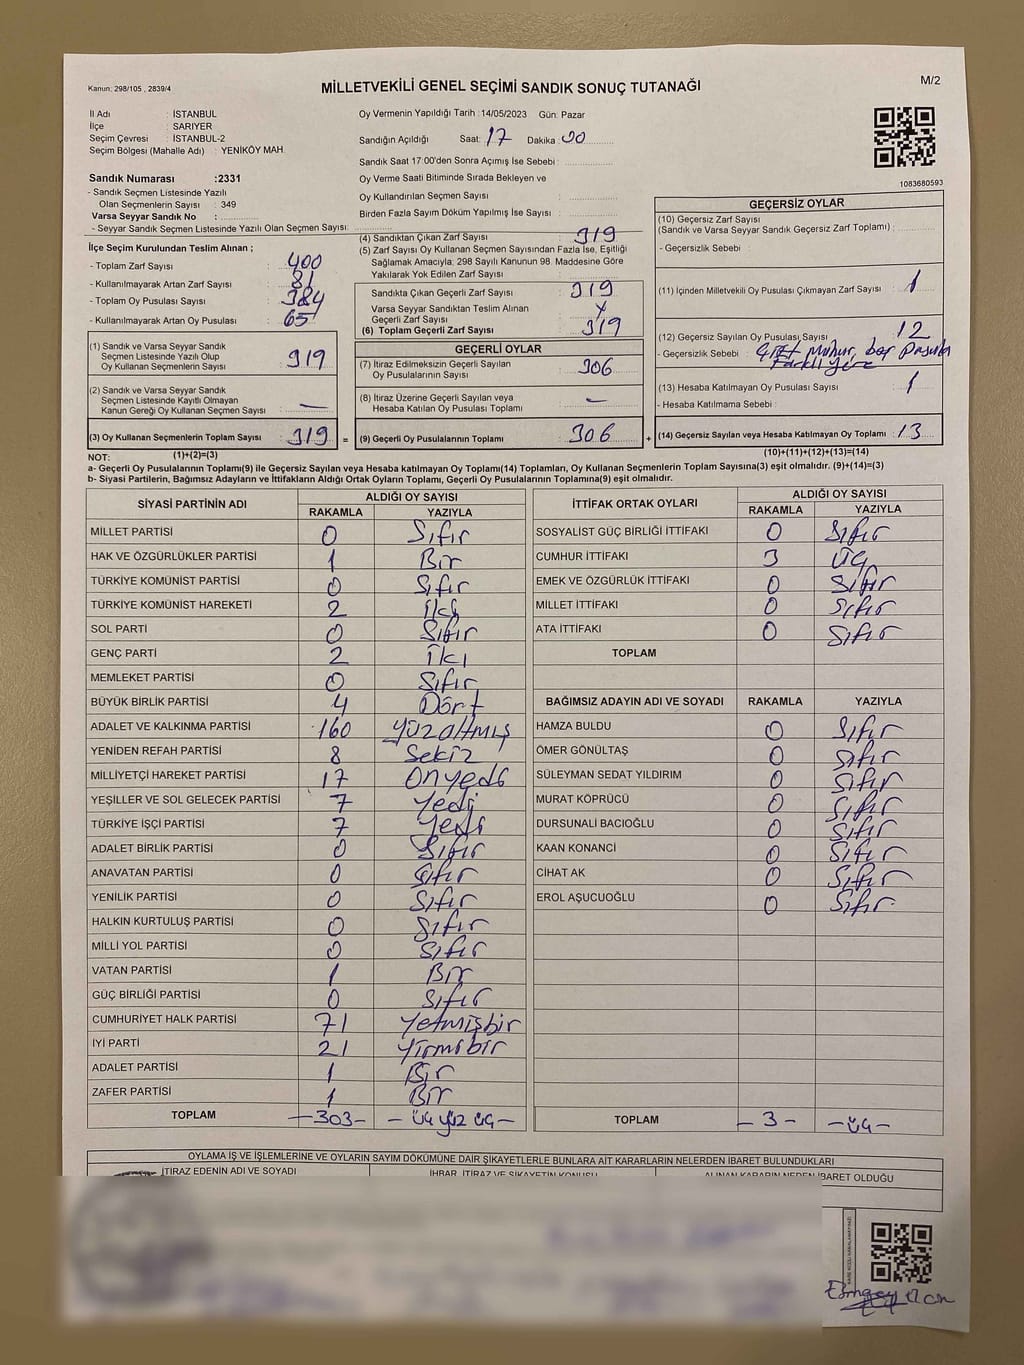 Kanun; 298/105 , 2839/4
MİLLETVEKİLİ GENEL SEÇİMİ SANDIK SONUÇ TUTANAĞI
M/2
İl Adı : İSTANBUL
İlçe : SARIYER
Seçim Çevresi : İSTANBUL-2
Seçim Bölgesi (Mahalle Adı) : YENİKÖY MAH.
Sandık Numarası :2331
- Sandık Seçmen Listesinde Yazılı
Olan Seçmenlerin Sayısı : 349
Varsa Seyyar Sandık No :
- Seyyar Sandık Seçmen Listesinde Yazılı Olan Seçmen Sayısı:
Oy Vermenin Yapıldığı Tarih : 14/05/2023 Gün: Pazar
Sandığın Açıldığı Saat: 17 Dakika: 00
Sandık Saat 17:00'den Sonra Açımış İse Sebebi :
Oy Verme Saati Bitiminde Sırada Bekleyen ve
Oy Kullandırılan Seçmen Sayısı :
Birden Fazla Sayım Döküm Yapılmış İse Sayısı :
1083680593
İlçe Seçim Kurulundan Teslim Alınan ;
- Toplam Zarf Sayısı : 400
- Kullanılmayarak Artan Zarf Sayısı : 81
- Toplam Oy Pusulası Sayısı : 384
- Kullanılmayarak Artan Oy Pusulası : 65
(1) Sandık ve Varsa Seyyar Sandık
Seçmen Listesinde Yazılı Olup
Oy Kullanan Seçmenlerin Sayısı : 319
(2) Sandık ve Varsa Seyyar Sandık
Seçmen Listesinde Kayıtlı Olmayan
Kanun Gereği Oy Kullanan Seçmen Sayısı : —
(3) Oy Kullanan Seçmenlerin Toplam Sayısı : 319 =
(4) Sandıktan Çıkan Zarf Sayısı : 319
(5) Zarf Sayısı Oy Kullanan Seçmen Sayısından Fazla İse, Eşitliği
Sağlamak Amacıyla; 298 Sayılı Kanunun 98. Maddesine Göre
Yakılarak Yok Edilen Zarf Sayısı :
Sandıkta Çıkan Geçerli Zarf Sayısı : 319
Varsa Seyyar Sandıktan Teslim Alınan
Geçerli Zarf Sayısı :
(6) Toplam Geçerli Zarf Sayısı : 319
GEÇERLİ OYLAR
(7) İtiraz Edilmeksizin Geçerli Sayılan
Oy Pusulalarının Sayısı : 306
(8) İtiraz Üzerine Geçerli Sayılan veya
Hesaba Katılan Oy Pusulası Toplamı : —
(9) Geçerli Oy Pusulalarının Toplamı : 306 +
GEÇERSİZ OYLAR
(10) Geçersiz Zarf Sayısı
(Sandık ve Varsa Seyyar Sandık Geçersiz Zarf Toplamı) :
- Geçersizlik Sebebi :
(11) İçinden Milletvekili Oy Pusulası Çıkmayan Zarf Sayısı : 1
(12) Geçersiz Sayılan Oy Pusulası Sayısı : 12
- Geçersizlik Sebebi : Çift Mühür, boş Pusula
Farklı yere
(13) Hesaba Katılmayan Oy Pusulası Sayısı : 1
- Hesaba Katılmama Sebebi :
(14) Geçersiz Sayılan veya Hesaba Katılmayan Oy Toplamı : 13
NOT: (1)+(2)=(3) (10)+(11)+(12)+(13)=(14)
a- Geçerli Oy Pusulalarının Toplamı(9) ile Geçersiz Sayılan veya Hesaba katılmayan Oy Toplamı(14) Toplamları, Oy Kullanan Seçmenlerin Toplam Sayısına(3) eşit olmalıdır. (9)+(14)=(3)
b- Siyasi Partilerin, Bağımsız Adayların ve İttifakların Aldığı Ortak Oyların Toplamı, Geçerli Oy Pusulalarının Toplamına(9) eşit olmalıdır.
SİYASİ PARTİNİN ADI ALDIĞI OY SAYISI
RAKAMLA YAZIYLA
MİLLET PARTİSİ 0 Sıfır
HAK VE ÖZGÜRLÜKLER PARTİSİ 1 Bir
TÜRKİYE KOMÜNİST PARTİSİ 0 Sıfır
TÜRKİYE KOMÜNİST HAREKETİ 2 İki
SOL PARTİ 0 Sıfır
GENÇ PARTİ 2 İki
MEMLEKET PARTİSİ 0 Sıfır
BÜYÜK BİRLİK PARTİSİ 4 Dört
ADALET VE KALKINMA PARTİSİ 160 Yüzaltmış
YENİDEN REFAH PARTİSİ 8 Sekiz
MİLLİYETÇİ HAREKET PARTİSİ 17 Onyedi
YEŞİLLER VE SOL GELECEK PARTİSİ 7 Yedi
TÜRKİYE İŞÇİ PARTİSİ 7 Yedi
ADALET BİRLİK PARTİSİ 0 Sıfır
ANAVATAN PARTİSİ 0 Sıfır
YENİLİK PARTİSİ 0 Sıfır
HALKIN KURTULUŞ PARTİSİ 0 Sıfır
MİLLİ YOL PARTİSİ 0 Sıfır
VATAN PARTİSİ 1 Bir
GÜÇ BİRLİĞİ PARTİSİ 0 Sıfır
CUMHURİYET HALK PARTİSİ 71 Yetmişbir
İYİ PARTİ 21 Yirmibir
ADALET PARTİSİ 1 Bir
ZAFER PARTİSİ 1 Bir
TOPLAM –303– – üç yüz üç –
İTTİFAK ORTAK OYLARI ALDIĞI OY SAYISI
RAKAMLA YAZIYLA
SOSYALİST GÜÇ BİRLİĞİ İTTİFAKI 0 Sıfır
CUMHUR İTTİFAKI 3 Üç
EMEK VE ÖZGÜRLÜK İTTİFAKI 0 Sıfır
MİLLET İTTİFAKI 0 Sıfır
ATA İTTİFAKI 0 Sıfır
TOPLAM
BAĞIMSIZ ADAYIN ADI VE SOYADI RAKAMLA YAZIYLA
HAMZA BULDU 0 Sıfır
ÖMER GÖNÜLTAŞ 0 Sıfır
SÜLEYMAN SEDAT YILDIRIM 0 Sıfır
MURAT KÖPRÜCÜ 0 Sıfır
DURSUNALİ BACIOĞLU 0 Sıfır
KAAN KONANCİ 0 Sıfır
CİHAT AK 0 Sıfır
EROL AŞUCUOĞLU 0 Sıfır
TOPLAM – 3 – – üç –
OYLAMA İŞ VE İŞLEMLERİNE VE OYLARIN SAYIM DÖKÜMÜNE DAİR ŞİKAYETLERLE BUNLARA AİT KARARLARIN NELERDEN İBARET BULUNDUKLARI
İTİRAZ EDENİN ADI VE SOYADI İHBAR, İTİRAZ VE ŞİKAYETİN KONUSU ALINAN KARARIN NEDEN İBARET OLDUĞU